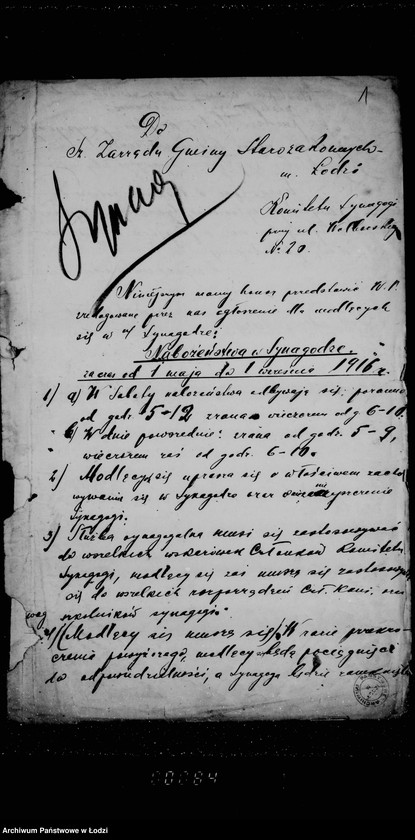 1
Do
Sz. Zarządu Gminy Starozakonnych
m. Łodzi
Komitetu Synagogi
przy ul. Wolborskiej
№ 20.
Niniejszym mamy honor przedstawić W.P.
zredagowane przez nas ogłoszenie dla modlących
się w Synagodze:
Nabożeństwa w Synagodze.
za czas od 1 maja do 1 września 1916 r.
1) a) W Soboty nabożeństwa odbywają się: poranne
od godz. 5-12 zrana wieczorem od g. 6-10.
b) W dnie powszednie: zrana od godz. 5-9,
wieczorem zaś od godz. 6-10.
2) Modlący się uprasza się o właściwe zacho
wywanie się w Synagodze oraz
Synagogi.
3) Służba synagogalna musi się zastosowywać
do wszelkich wskazówek Członków Komitetu
Synagogi, modlący się zaś muszą się zastosowy
się do wszelkich rozporządzeń Czł. Kom.
synagogi.
4) (Modlący się muszą się) W razie przekro
czenia powyższego, modlący będą pociągnięci
do odpowiedzialności, a Synagoga będzie
00084
Archiwum Państwowe w Łodzi